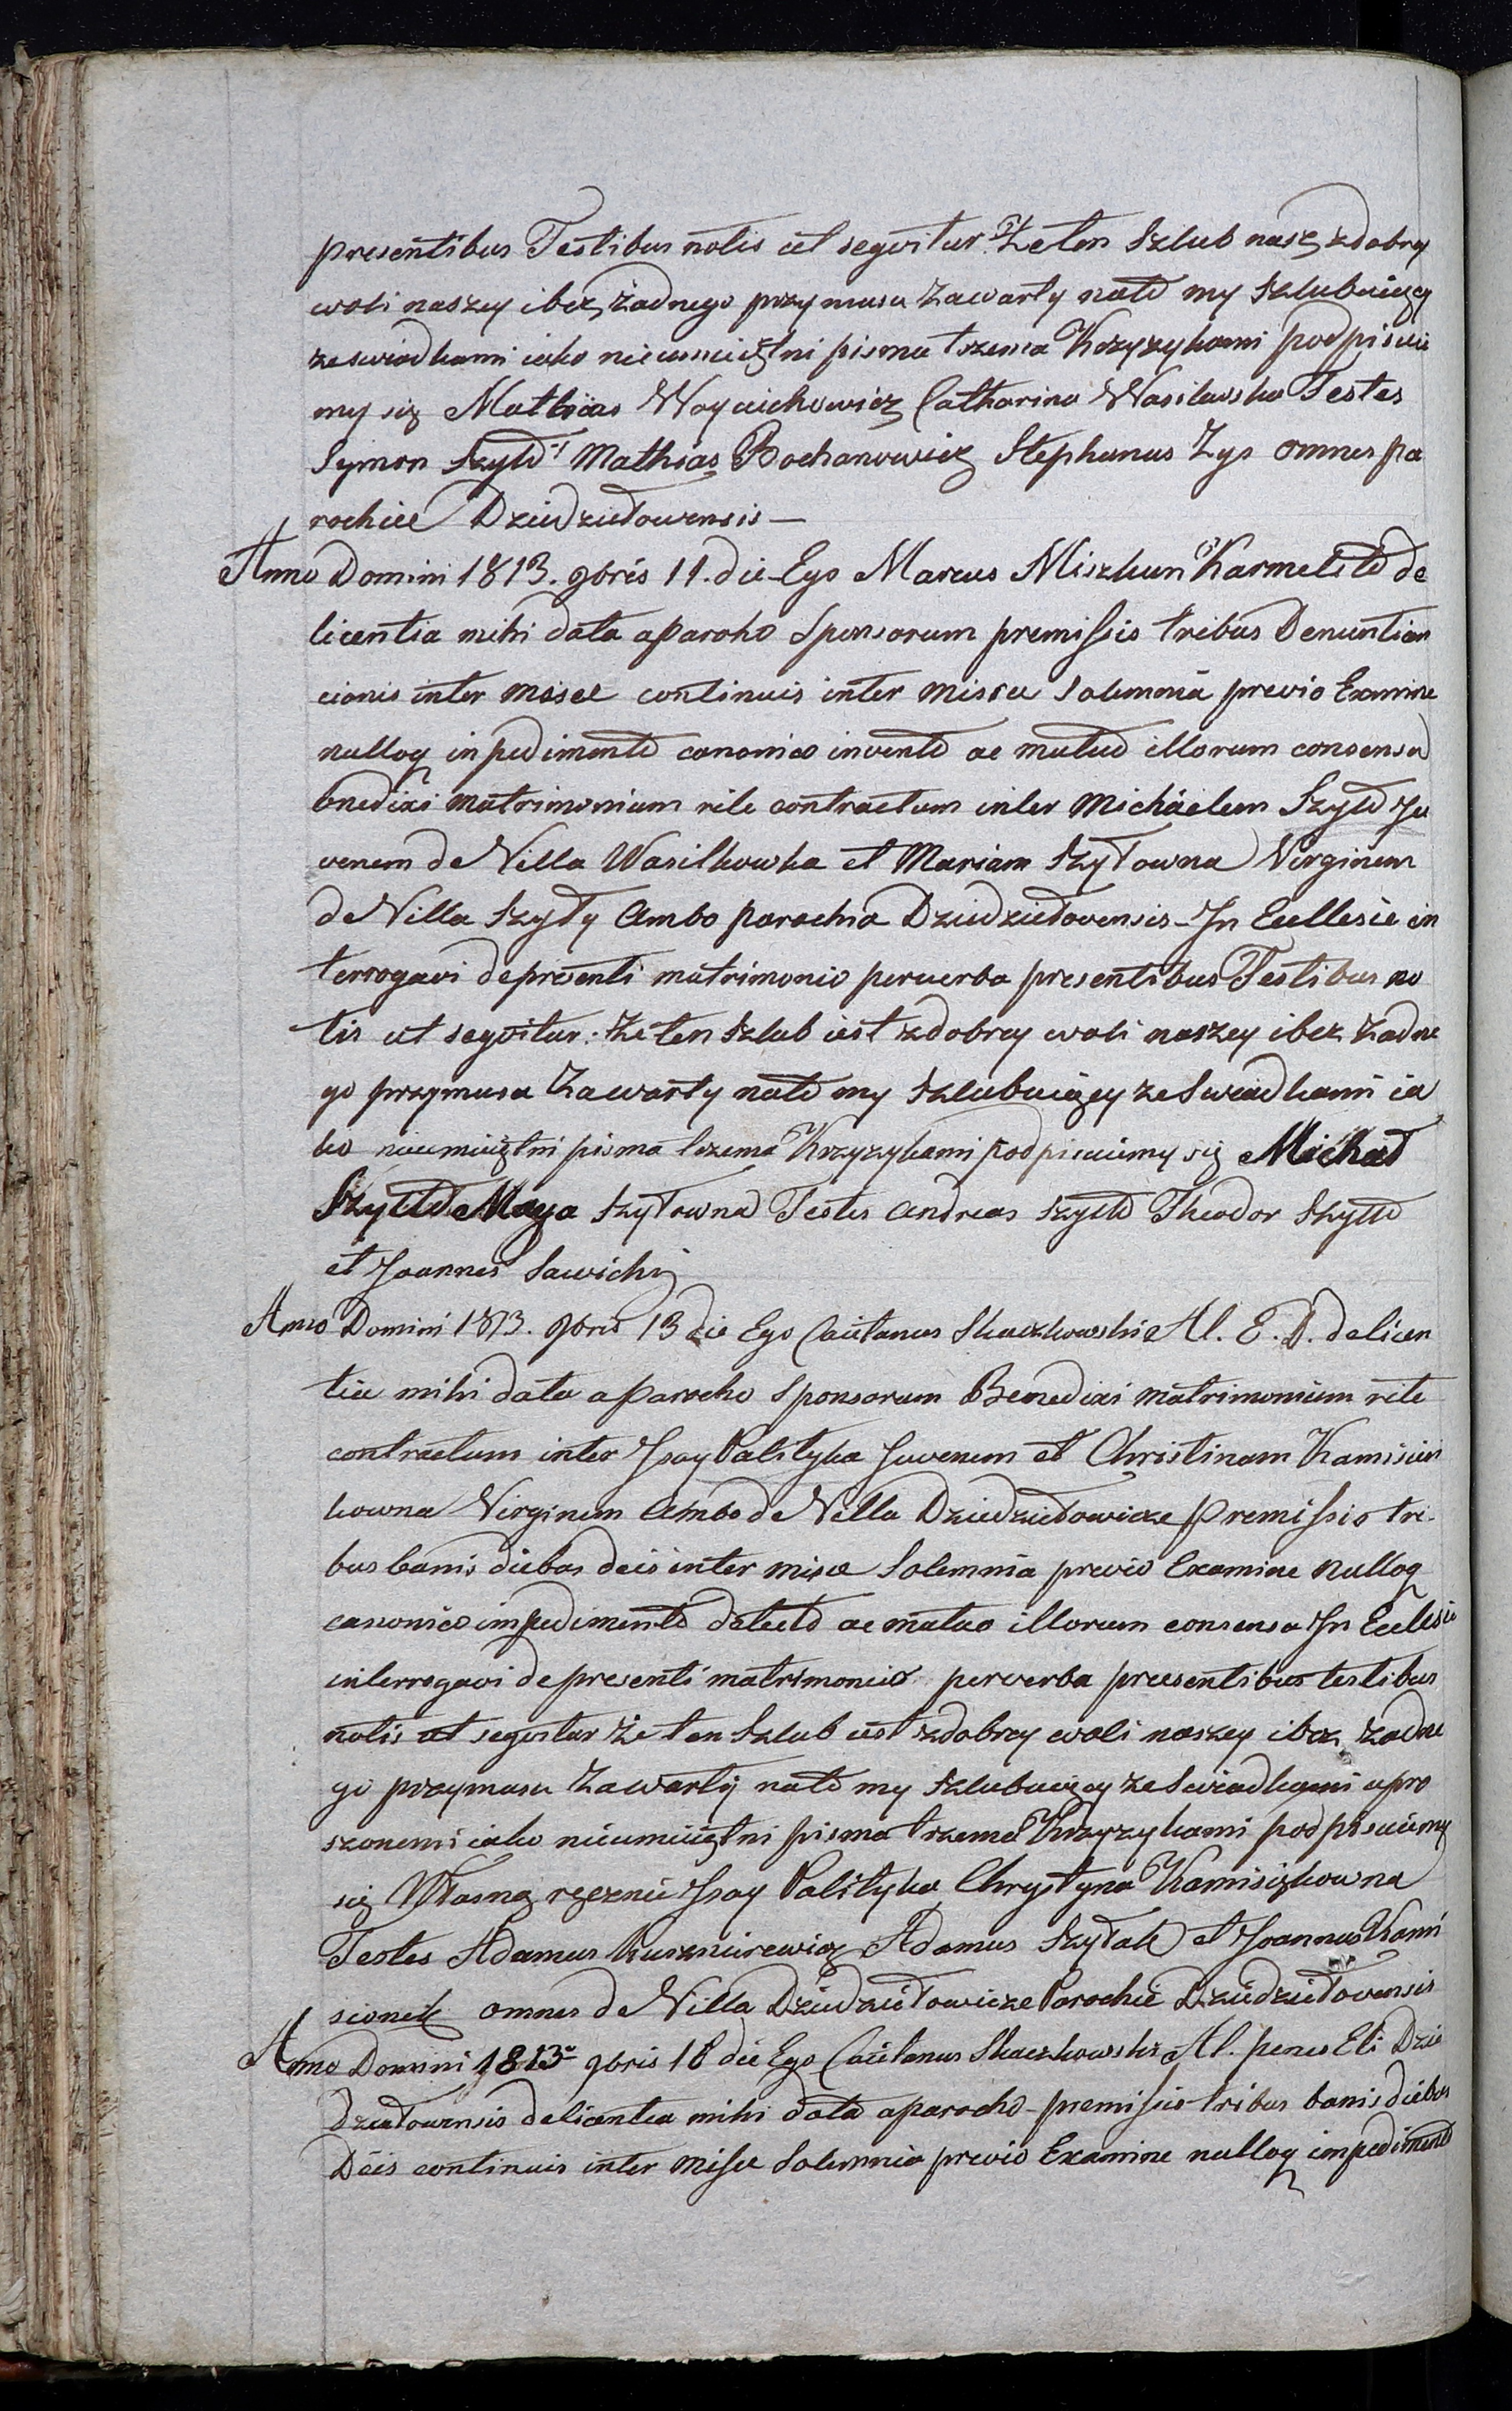 presentibus Testibus notis ut seqvitur Że ten Szlub nasz zdobrey
woli naszey ibez żadnego przymusu Zawarty nato my Szlubuiący
ze swiadkami iako nieumieiętni pisma trzema Krzyzykami podpisuie
my się Mathias Woyciechowicz Catharina Wasilewska Testes
Symon Szyło Mathias Bochanowicz Stephanus Zys omnes pa
rochiæ Dziedziełowensis —
Anno Domini 1813. 9bris 11. die Ego Marcus Miszkun Karmelita de
licentia mihi data aparoho Sponsorum premissis tribus Denuntian
cionis inter misæ continuis inter missæ Solemnia previo Examine
nulloq inpedimento canonico invento ac mutuo illorum consensu
bnedixi matrimonium rite contractum inter Michaelem Szyło Ju
venem de Villa Wasilkowka et Mariam Szyłowna Virginem
de Villa Szyły Ambo parochia Dziedziełovensis In Ecclesie in
terrogavi depresenti matrimonio perverba presentibus Testibus no
tis ut seqvitur: Że ten Szlub iest zdobrey woli naszey ibez Zadne
go przymusu Zawarty nato my Szlubuiący ze Swiadkami ia
ko nieumieiętni pisma trzema Krzyzykami podpisuiemy się Michał
Szyłło Marya Szyłowna Testes Andreas Szyłło Theodor Szyłło
et Joannes Sawicki
Anno Domini 1813. 9bris 13 die Ego Caietanus Skaczkowski Al. E. D. delicen
tia mihi data a Parocho Sponsorum Benedixi matrimonium rite
contractum inter Jsay Palityka Juvenem et Christinam Kamisien
kowna Virginem Ambo de Villa Dziedziełowicze premissis tri
bus banis diebus deis inter misæ Solemnia previo Examine nulloq
canonico impedimento detecto ac mutuo illorum consensu In Eccłesia
interrogavi depresenti matrimonio perverba præsentibus testibus
notis ut seqvitur że ten Szlub iest zdobrey woli naszey ibez zadne
go przymusu Zawarty nato my Szlubuiący ze Swiadkami upro
szonemi iako nieumieiętni pisma trzema Krzyzykami podpisuiemy
się Własną ręcznie Jsay Palityka Chrystyna Kamisiękowna
Testes Adamus Kusznirewicz Adamus Szyłak et Joannes Kami
sionek omnes de Villa Dziedziełowicze Parochiæ Dziedziełovensis
Anno Domini 1813 9bris 18 die Ego Caietanus Skaczkowski Al. penes Eti Dzie
dziełowensis delicentia mihi data aparocho premissis tribus banis diebus
Deis continuis inter misæ Solemnia previo Examine nulloq impedimento